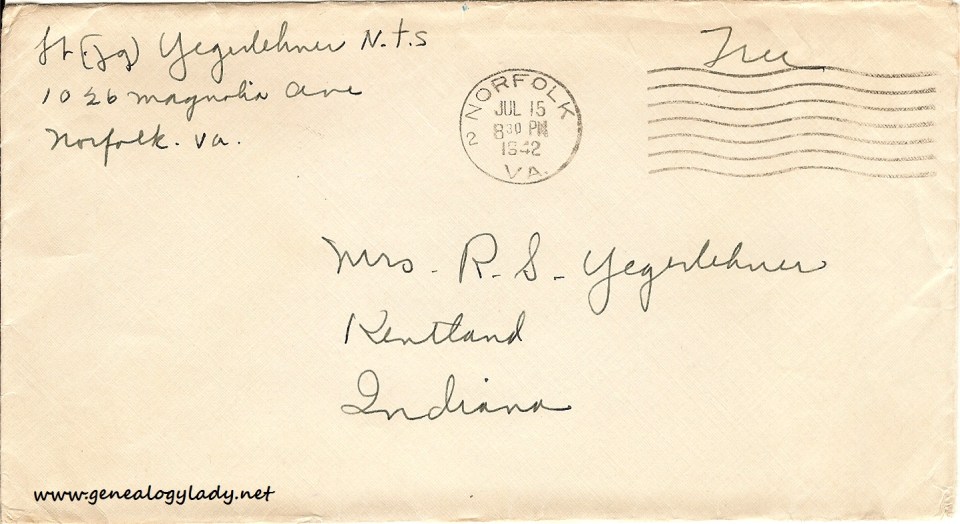 Lt (jg) Yegerlehner N.T.S
1026 Magnolia Ave
Norfolk. Va.
Free
NORFOLK
2
JUL 15
8 30 PM
1942
VA.
Mrs. R. S. Yegerlehner
Kentland
Indiana
www.genealogylady.net